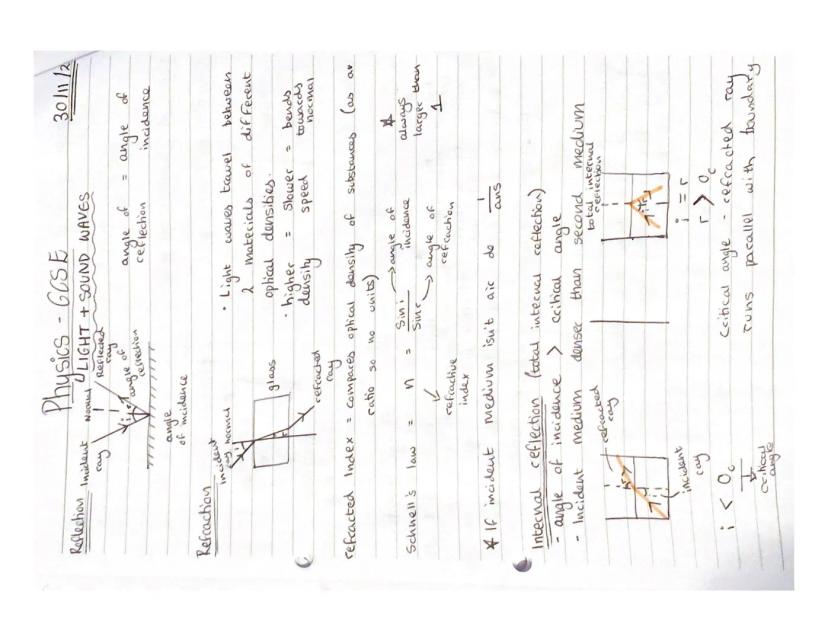 Physics - GCSE
30/11/2
LIGHT + SOUND WAVES
Reflection
Incident ray
Normal
Reflected ray
angle of reflection
i r
angle of incidence
angle of reflection = angle of incidence
Refraction
incident ray
normal
glass
refracted ray
• Light waves travel between
2 materials of different
optical densities.
• higher density = slower speed = bends towards normal
refracted Index = compares optical density of substances (as a
ratio so no units)
Schnell's law = n = Sin i → angle of incidence
Sin r → angle of refraction
refractive index
* always larger than 1
* If incident medium isn't air do 1/ans
Internal reflection (total internal reflection)
- angle of incidence > critical angle
- Incident medium denser than second medium
refracted ray
incident ray
i < Oc
critical angle
total internal reflection
i r
i = r
r > Oc
Critical angle - refracted ray
runs parallel with boundary